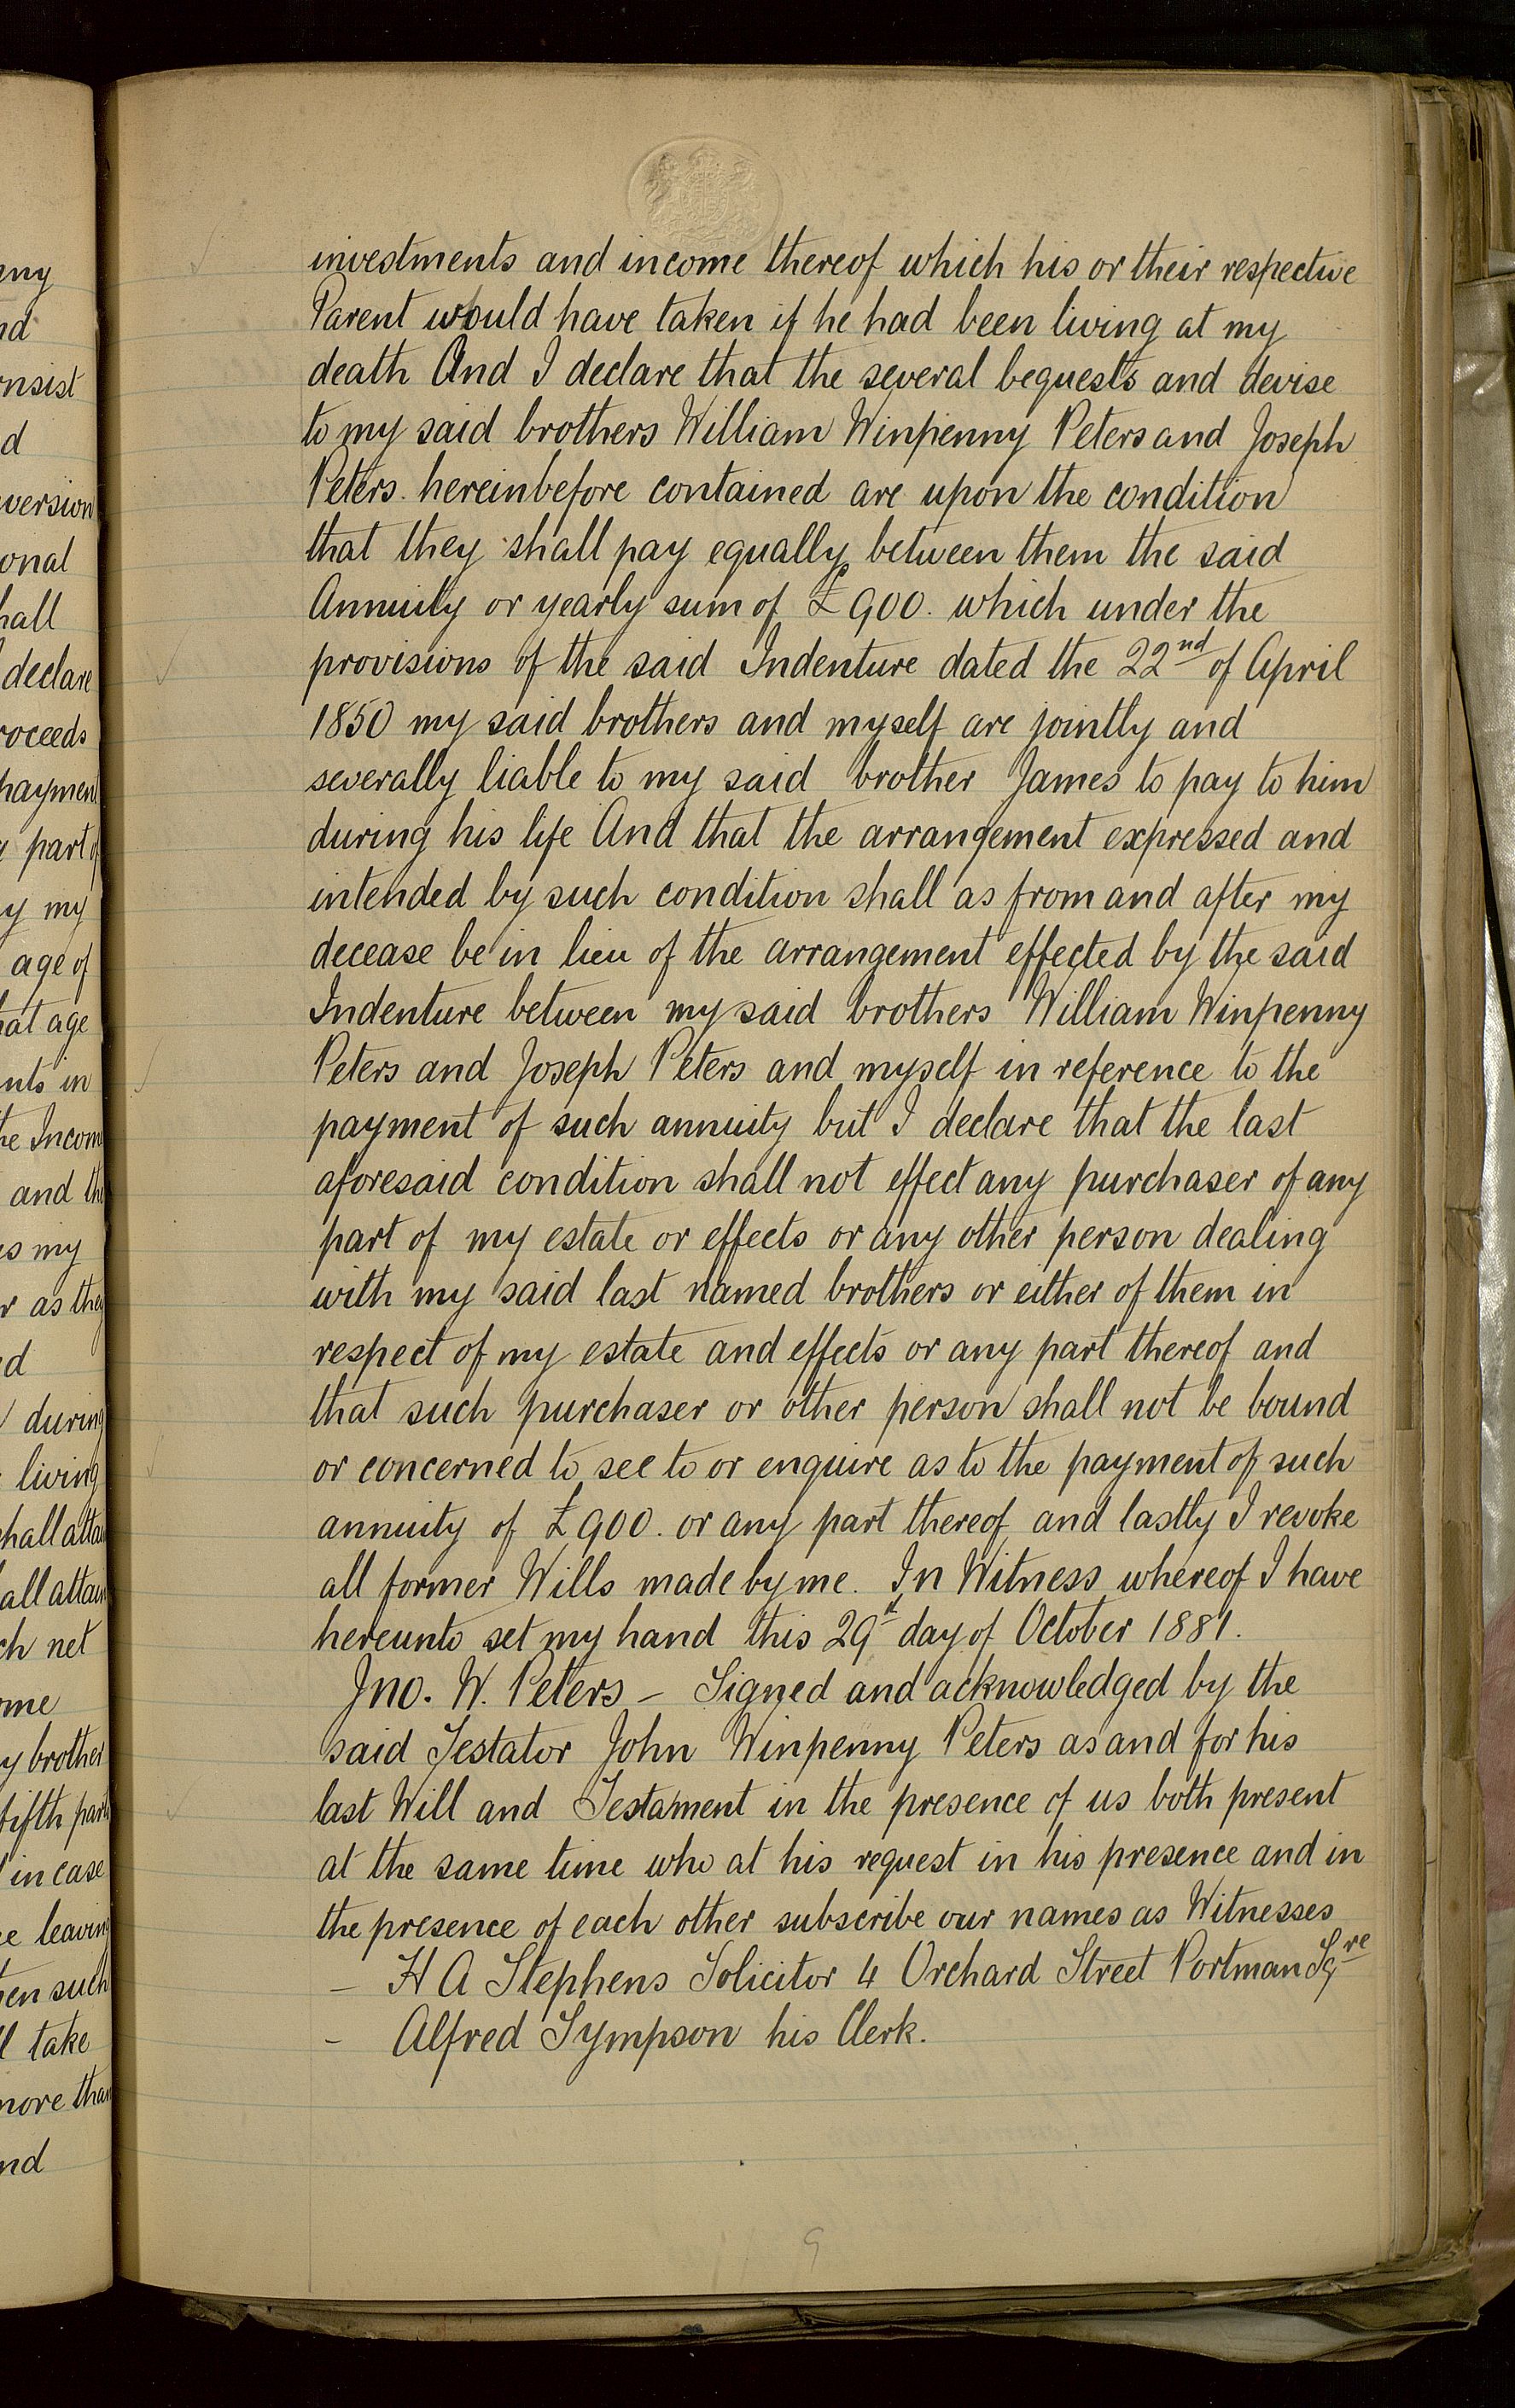 investments and income thereof which his or their respective
Parent would have taken if he had been living at my
death And I declare that the several bequests and devise
to my said brothers William Winpenny Peters and Joseph
Peters hereinbefore contained are upon the condition
that they shall pay equally between them the said
Annuity or yearly sum of £900. which under the
provisions of the said Indenture dated the 22nd of April
1850 my said brothers and myself are jointly and
severally liable to my said brother James to pay to him
during his life And that the arrangement expressed and
intended by such condition shall as from and after my
decease be in lieu of the arrangement effected by the said
Indenture between my said brothers William Winpenny
Peters and Joseph Peters and myself in reference to the
payment of such annuity but I declare that the last
aforesaid condition shall not effect any purchaser of any
part of my estate or effects or any other person dealing
with my said last named brothers or either of them in
respect of my estate and effects or any part thereof and
that such purchaser or other person shall not be bound
or concerned to see to or enquire as to the payment of such
annuity of £900. or any part thereof and lastly I revoke
all former Wills made by me. In Witness whereof I have
hereunto set my hand this 29th day of October 1881.
Jno. W. Peters – Signed and acknowledged by the
said Testator John Winpenny Peters as and for his
last Will and Testament in the presence of us both present
at the same time who at his request in his presence and in
the presence of each other subscribe our names as Witnesses
– H A Stephens Solicitor 4 Orchard Street Portman Sqre
– Alfred Sympson his Clerk.
9